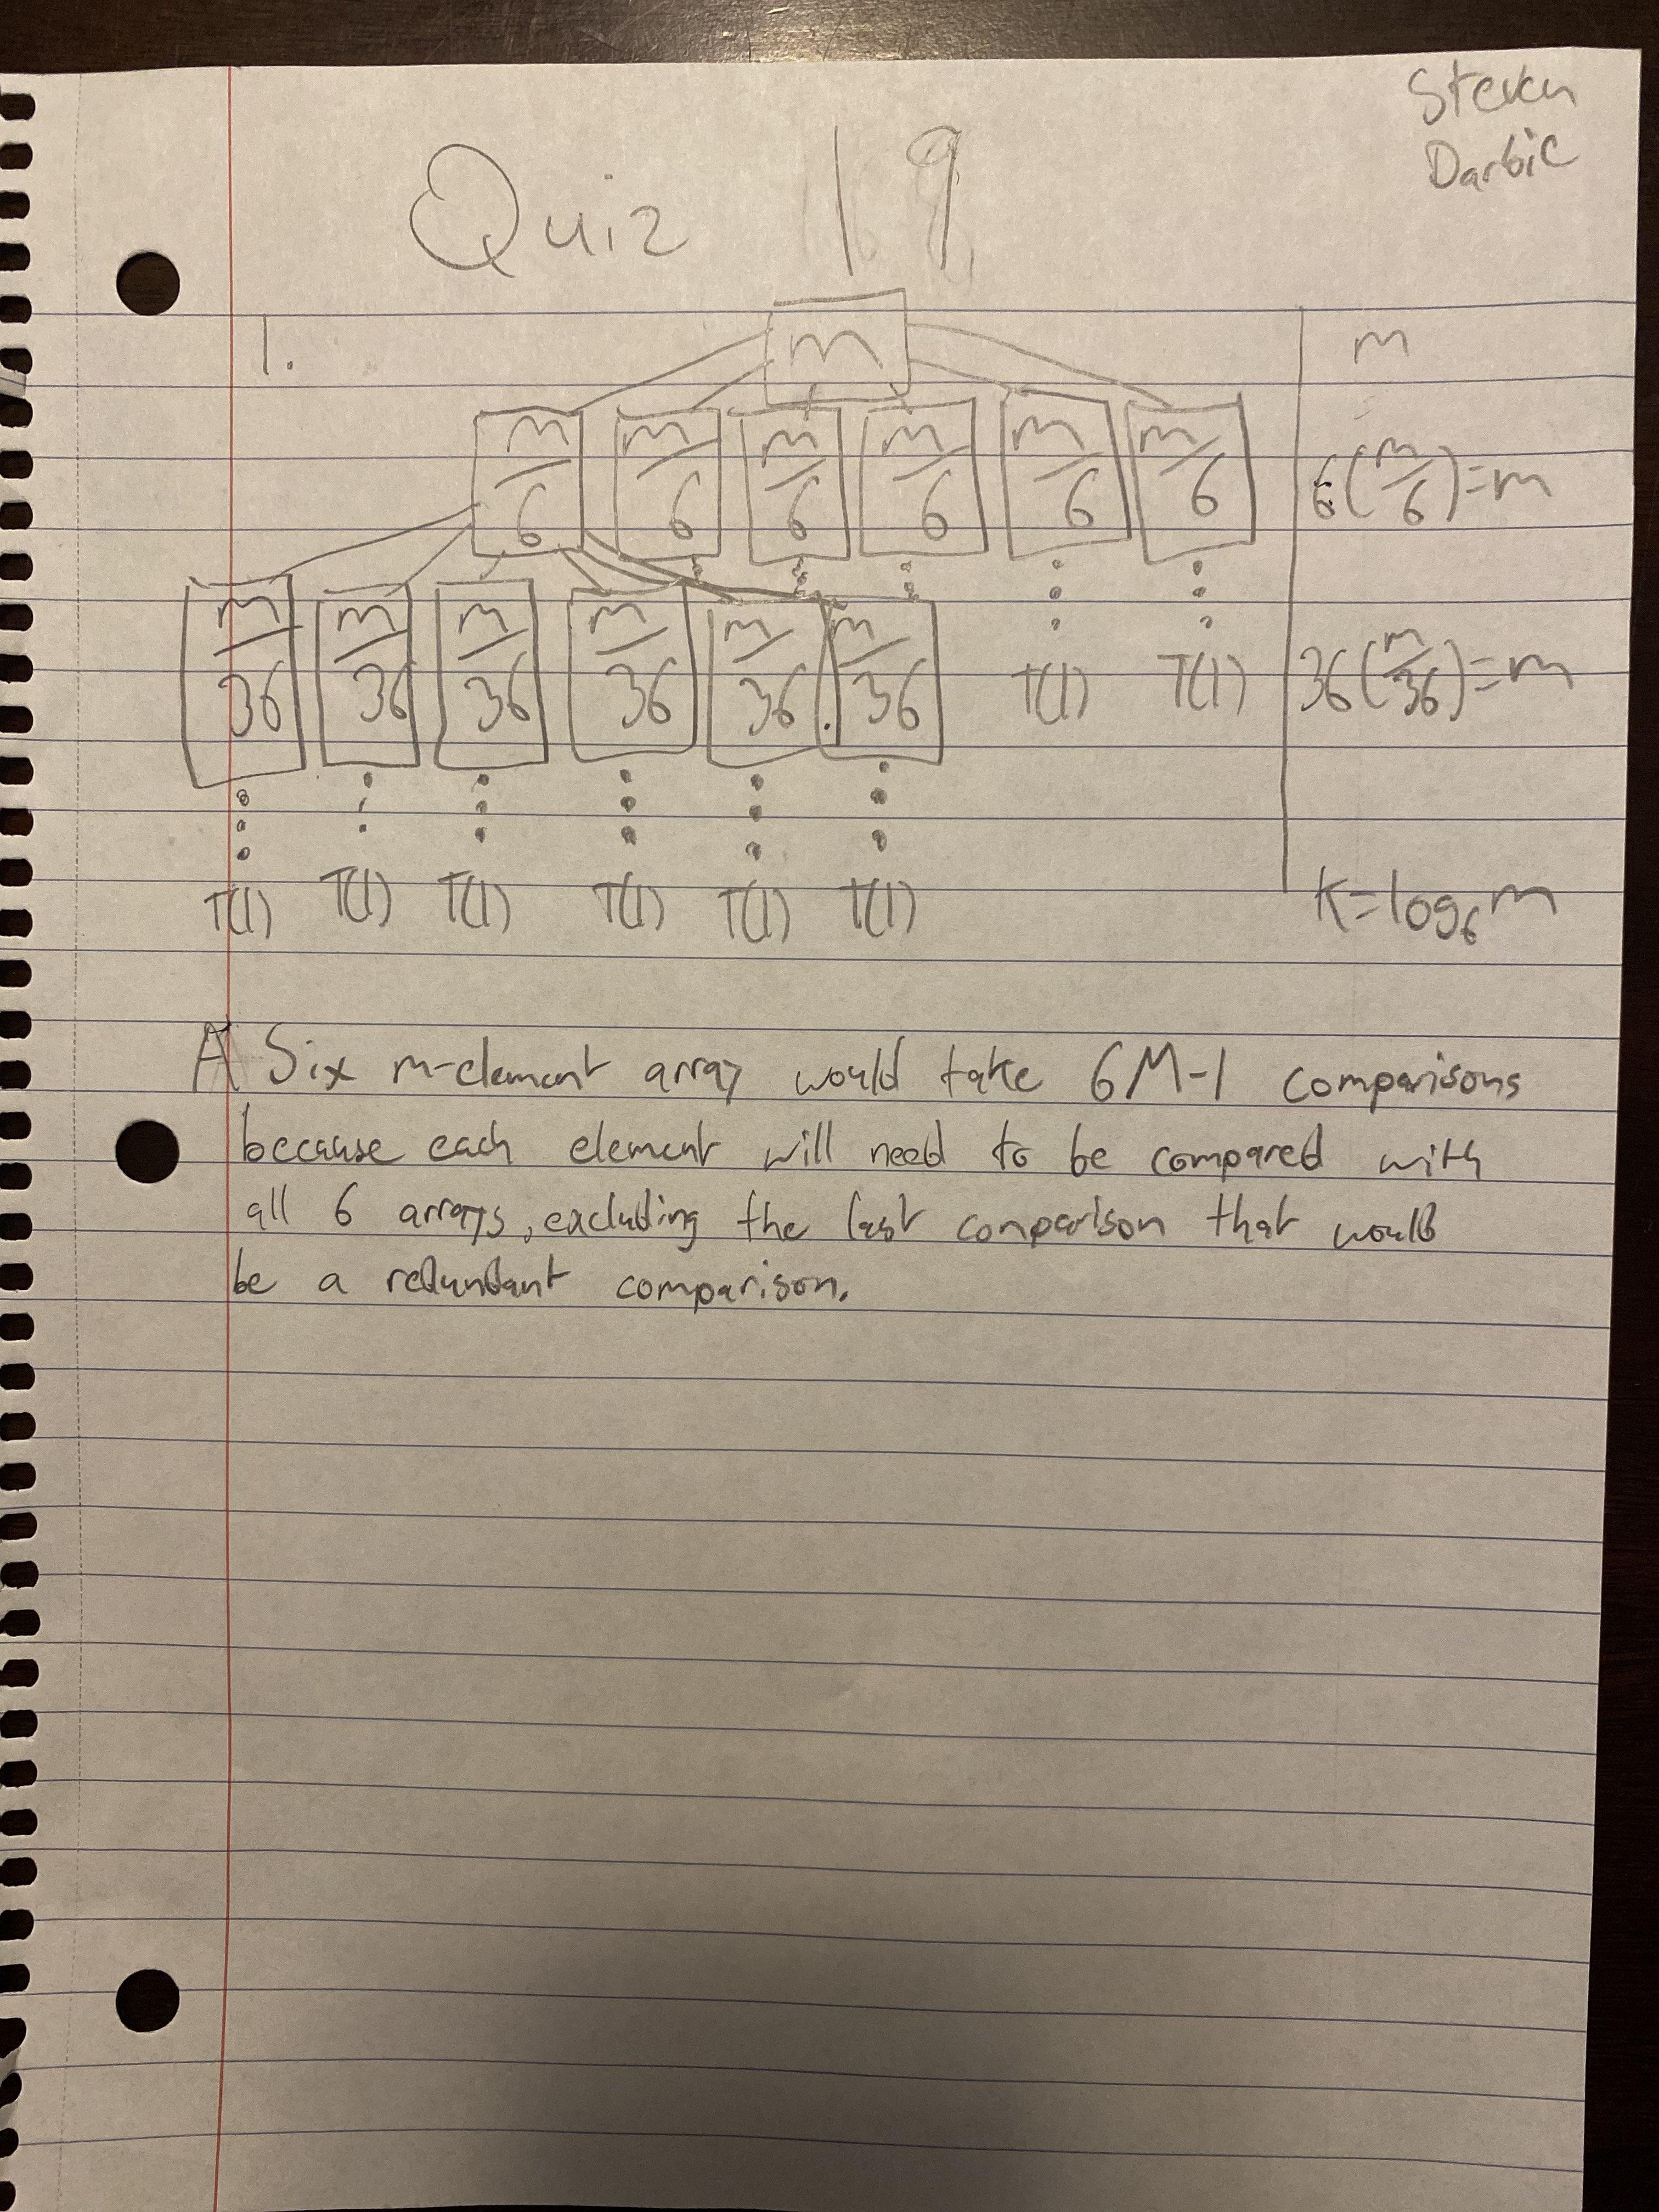 Steven
Darbic
Quiz 19
1.
m
m
m/6 m/6 m/6 m/6 m/6 m/6
6(m/6)=m
m/36 m/36 m/36 m/36 m/36 m/36 T(1) T(1)
36(m/36)=m
T(1) T(1) T(1) T(1) T(1) T(1)
K=log₆m
A Six m-element array would take 6M-1 comparisons
because each element will need to be compared with
all 6 arrays, excluding the last comparison that would
be a redundant comparison.